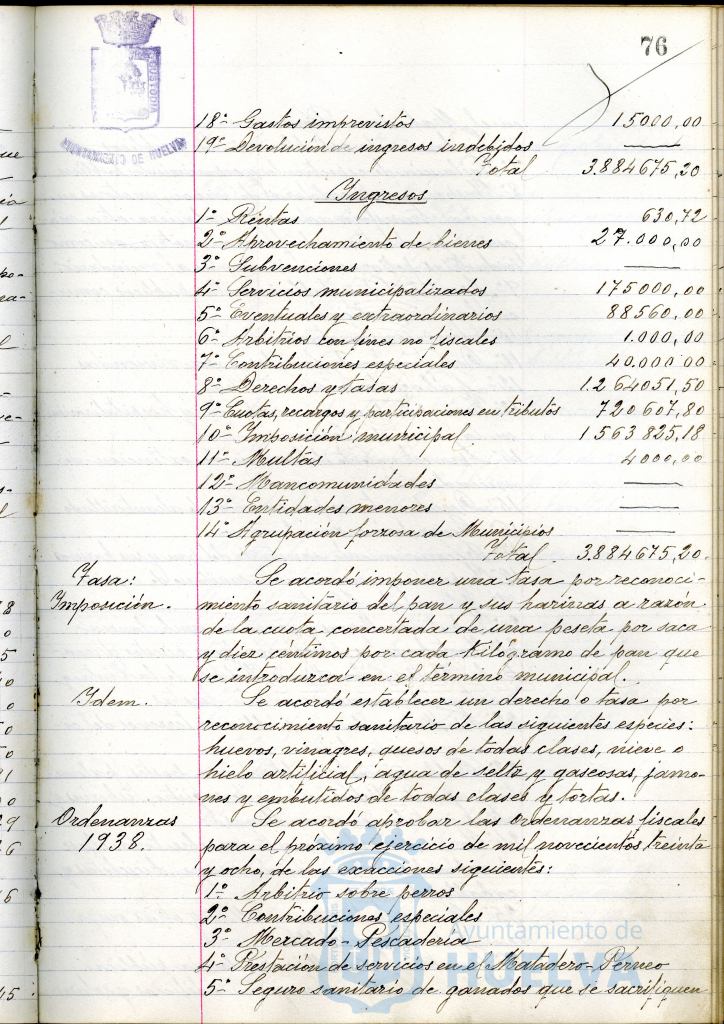 76
CUSTODIA
AYUNTAMIENTO DE HUELVA
18º Gastos imprevistos 15000,00
19º Devolución de ingresos indebidos ———
Total 3.884675,20
Ingresos
1º Rentas 630,72
2º Aprovechamiento de bienes 27.000,00
3º Subvenciones ———
4º Servicios municipalizados 175000,00
5º Eventuales y extraordinarios 88560,00
6º Arbitrios con fines no fiscales 1.000,00
7º Contribuciones especiales 40.000 00
8º Derechos y tasas 1.264051,50
9º Cuotas, recargos y participaciones en tributos 720607,80
10º Imposición municipal 1.563825,18
11º Multas 4000,00
12º Mancomunidades ———
13º Entidades menores ———
14º Agrupación forzosa de Municipios ———
Total 3.884675,20.
Tasa: Se acordó imponer una tasa por reconoci-
Imposición. miento sanitario del pan y sus harinas a razón
de la cuota concertada de una peseta por saca
y diez centimos por cada kilógramo de pan que
se introduzca en el término municipal.
Idem. Se acordó establecer un derecho o tasa por
reconocimiento sanitario de las siguientes especies:
huevos, vinagres, quesos de todas clases, nieve o
hielo artificial, agua de seltz y gaseosas, jamo-
nes y embutidos de todas clases y tortas.
Ordenanzas Se acordó aprobar las ordenanzas fiscales
1938. para el próximo ejercicio de mil novecientos treinta
y ocho, de las exacciones siguientes:
1º Arbitrio sobre perros
2º Contribuciones especiales
3º Mercado - Pescaderia
4º Prestación de servicios en el Matadero - Perneo
5º Seguro sanitario de ganados que se sacrifiquen
Ayuntamiento de
HUELVA